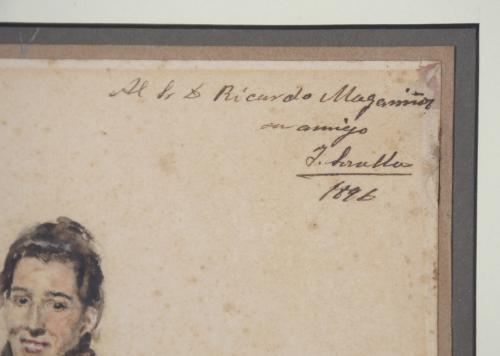 Al Sr D Ricardo Magariños
su amigo
1896